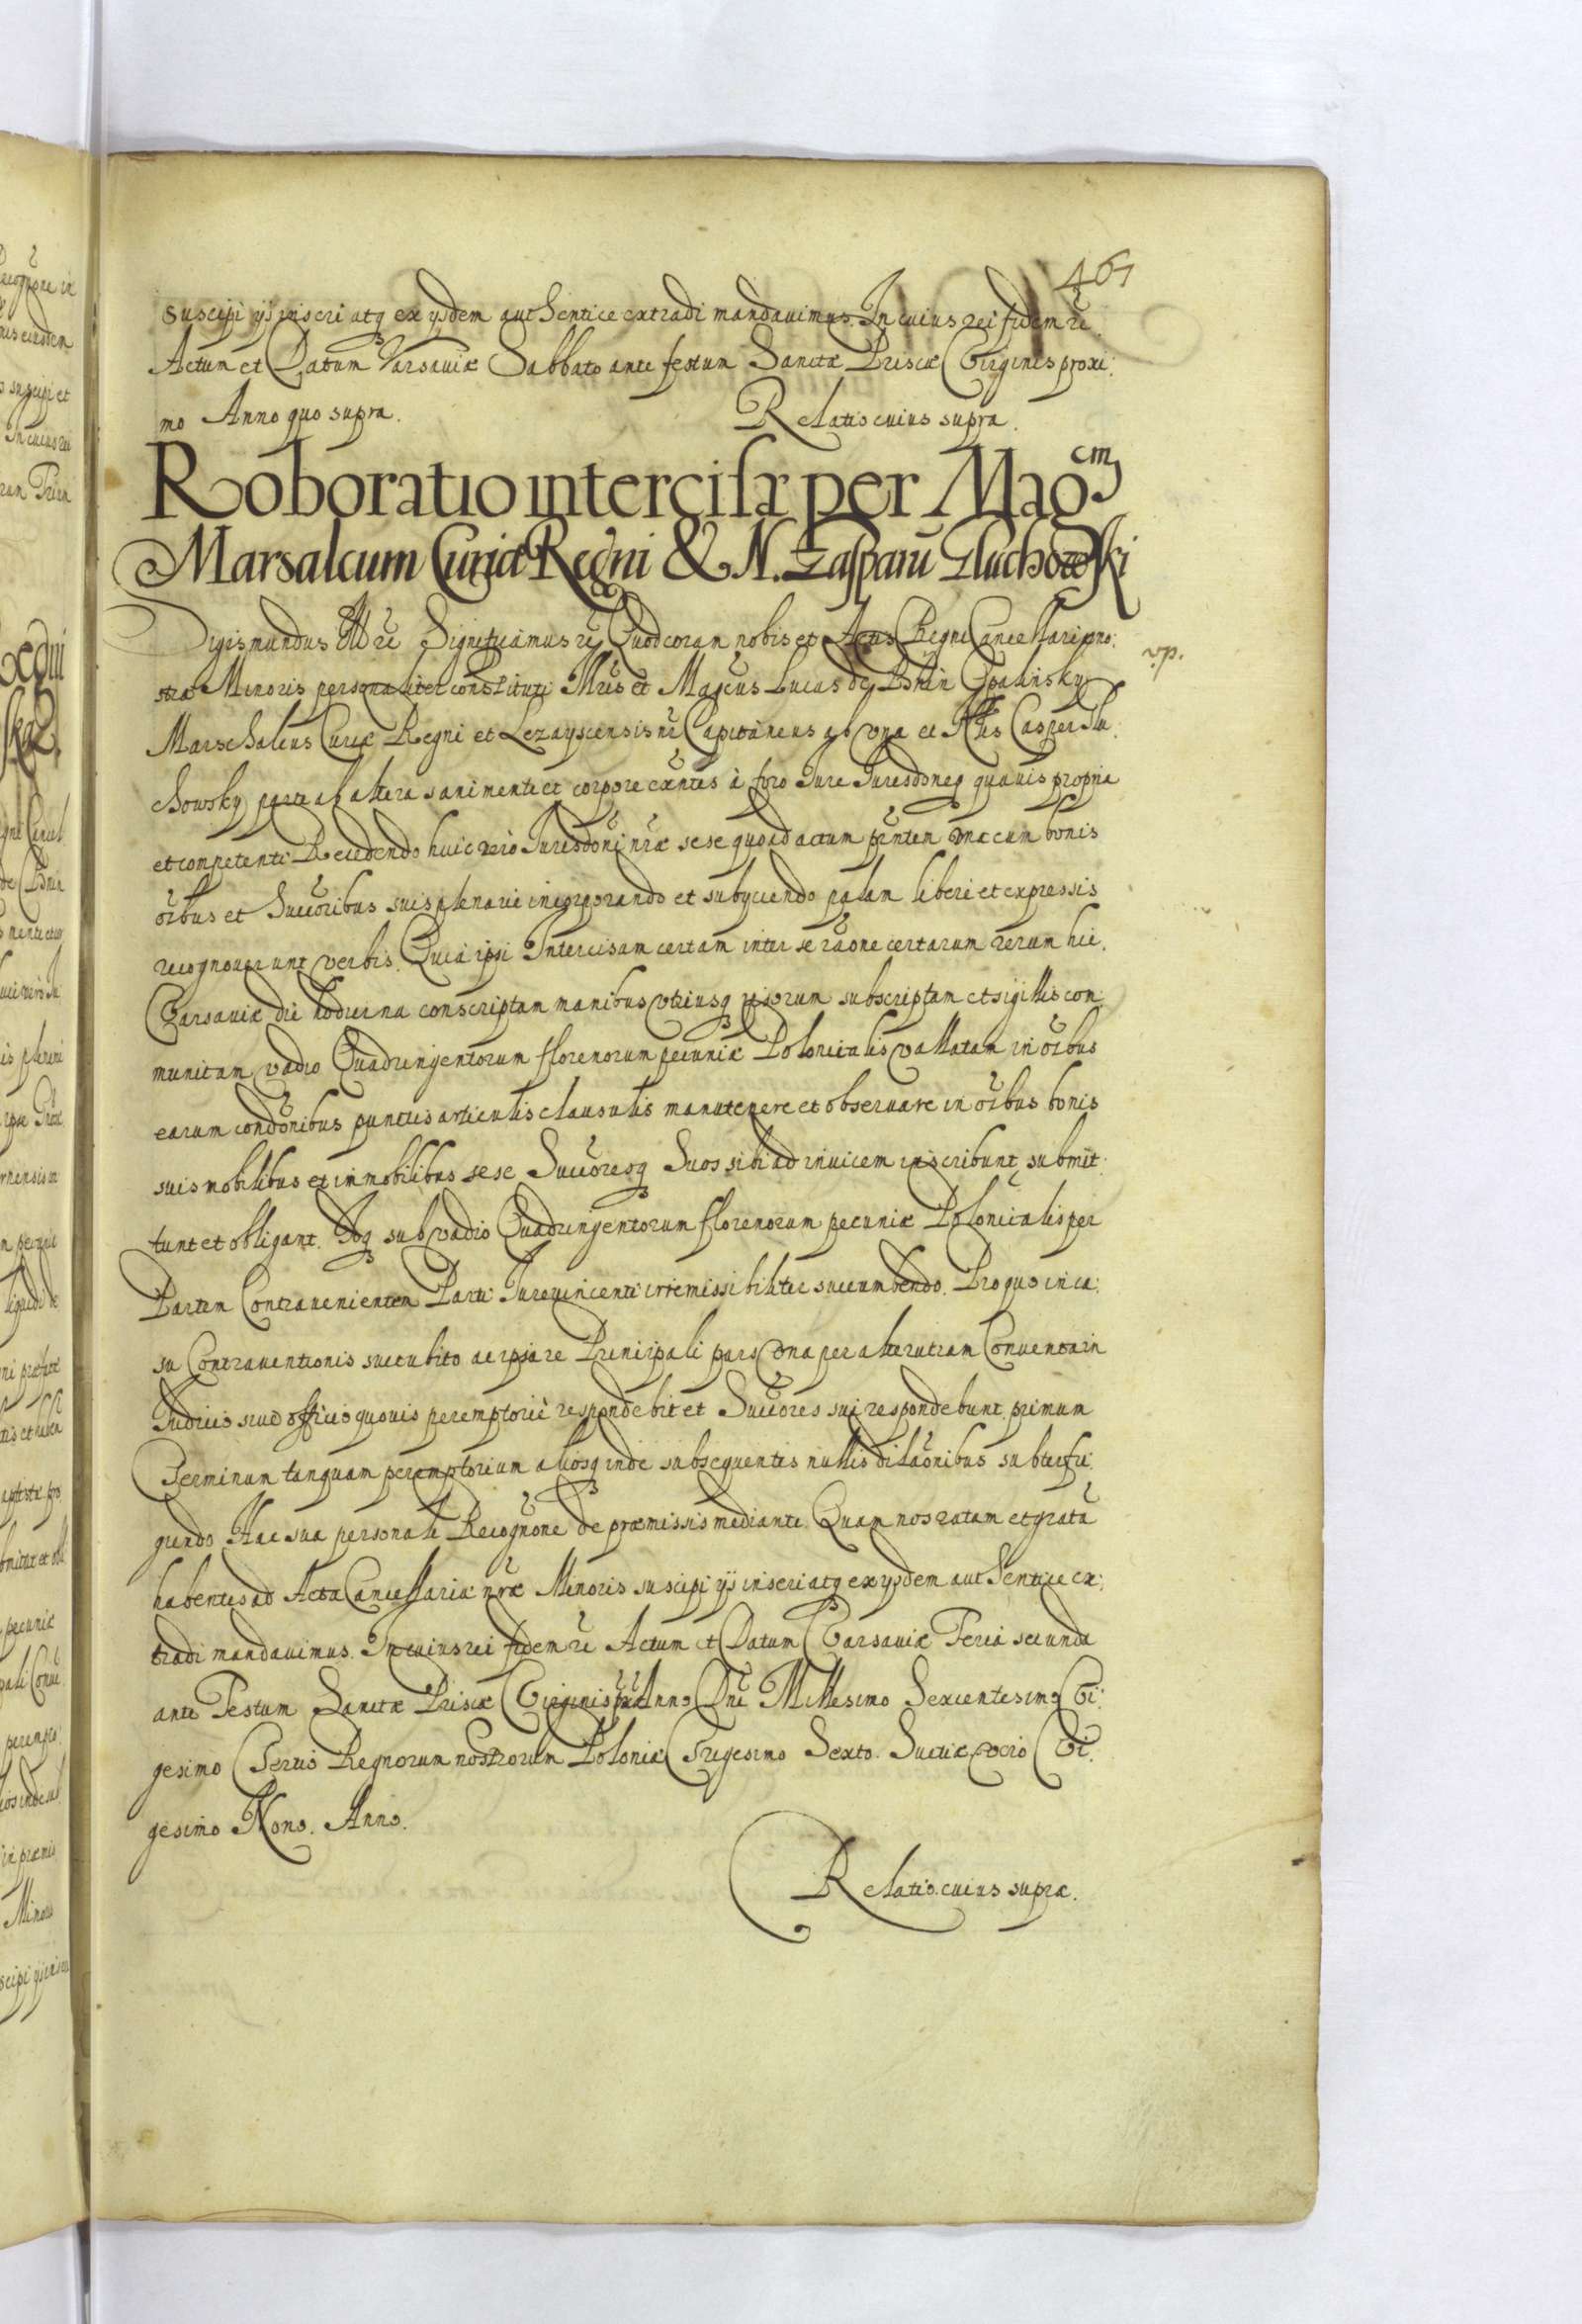 467
suscipi ijs inseri atq ex ijsdem authentice extradi mandauimus. In cuius rei fidem rc̃
Actum et Datum Varsauiæ Sabbato ante festum Sanctæ Priscæ Virginis proxi:
mo Anno quo supra. Relatio cuius supra.
Roboratio intercisæ per Mag^cm
Marsalcum Curiæ Regni & N. Gasparū Tluchowski
Sigismundus IIItius rc̃ Significamus rc̃ Quod coram nobis et Actis Regni Cancellariæ no:
stræ Minoris personaliter constituti Mcus et Magcus Lucas de Bnin Opalinsky
Marschalcus Curiæ Regni et Lezayscensis nr̃ Capitaneus ab vna et Nlis Casper Tlu:
chowsky parte ab altera sani mente et corpore exñtes à foro Iure Iuresdoneq quauis propria
et competenti Recedendo huic vero Iuresdoni nr̃æ sese quoad actum pñtem vna cum bonis
oĩbus et Succoribus suis plenarie incorporando et subijciendo palam libere et expressis
recognouerunt verbis. Quia ipsi Intercisam certam inter se raõne certarum rerum hic
Varsauiæ die hodierna conscriptam manibus vtriusq ipsorum subscriptam et sigillis com:
munitam vadio Quadringentorum florenorum pecuniæ Polonicalis vallatam in oĩbus
earum condonibus punctis articulis clausulis manutenere et obseruare in oĩbus bonis
suis mobilibus et immobilibus sese Succoresq Suos sibi ad inuicem inscribunt submit:
tunt et obligant. Idq sub vadio Quadringentorum florenorum pecuniæ Polonicalis per
Partem Contrauenientem Parti Iureuincenti irremissibiliter succumbendo. Pro quo in ca:
su Contrauentionis succubito ac ipsa re Principali pars vna per alterutram Conuenta in
Iudicio seu officio quouis peremptorie respondebit et Succores sui respondebunt primum
Terminum tanquam peremptorium aliosq inde subsequentes nullis dilaõnibus subterfu:
giendo Hac sua personali Recognone de præmissis mediante Quam nos ratam et gratã
habentes ad Acta Cancellariæ nr̃æ Minoris suscipi ijs inseri atq ex ijsdem authentice ex:
tradi mandauimus. In cuius rei fidem rc̃ Actum et Datum Varsauiæ Feria secunda
ante Festum Sanctæ Priscæ Virginis Anno Dñi Millesimo Sexcentesimo Vi:
gesimo Tertio Regnorum nostrorum Poloniæ Trigesimo Sexto. Sueciæ vero Vi:
gesimo Nono. Anno.
Relatio cuius supra.